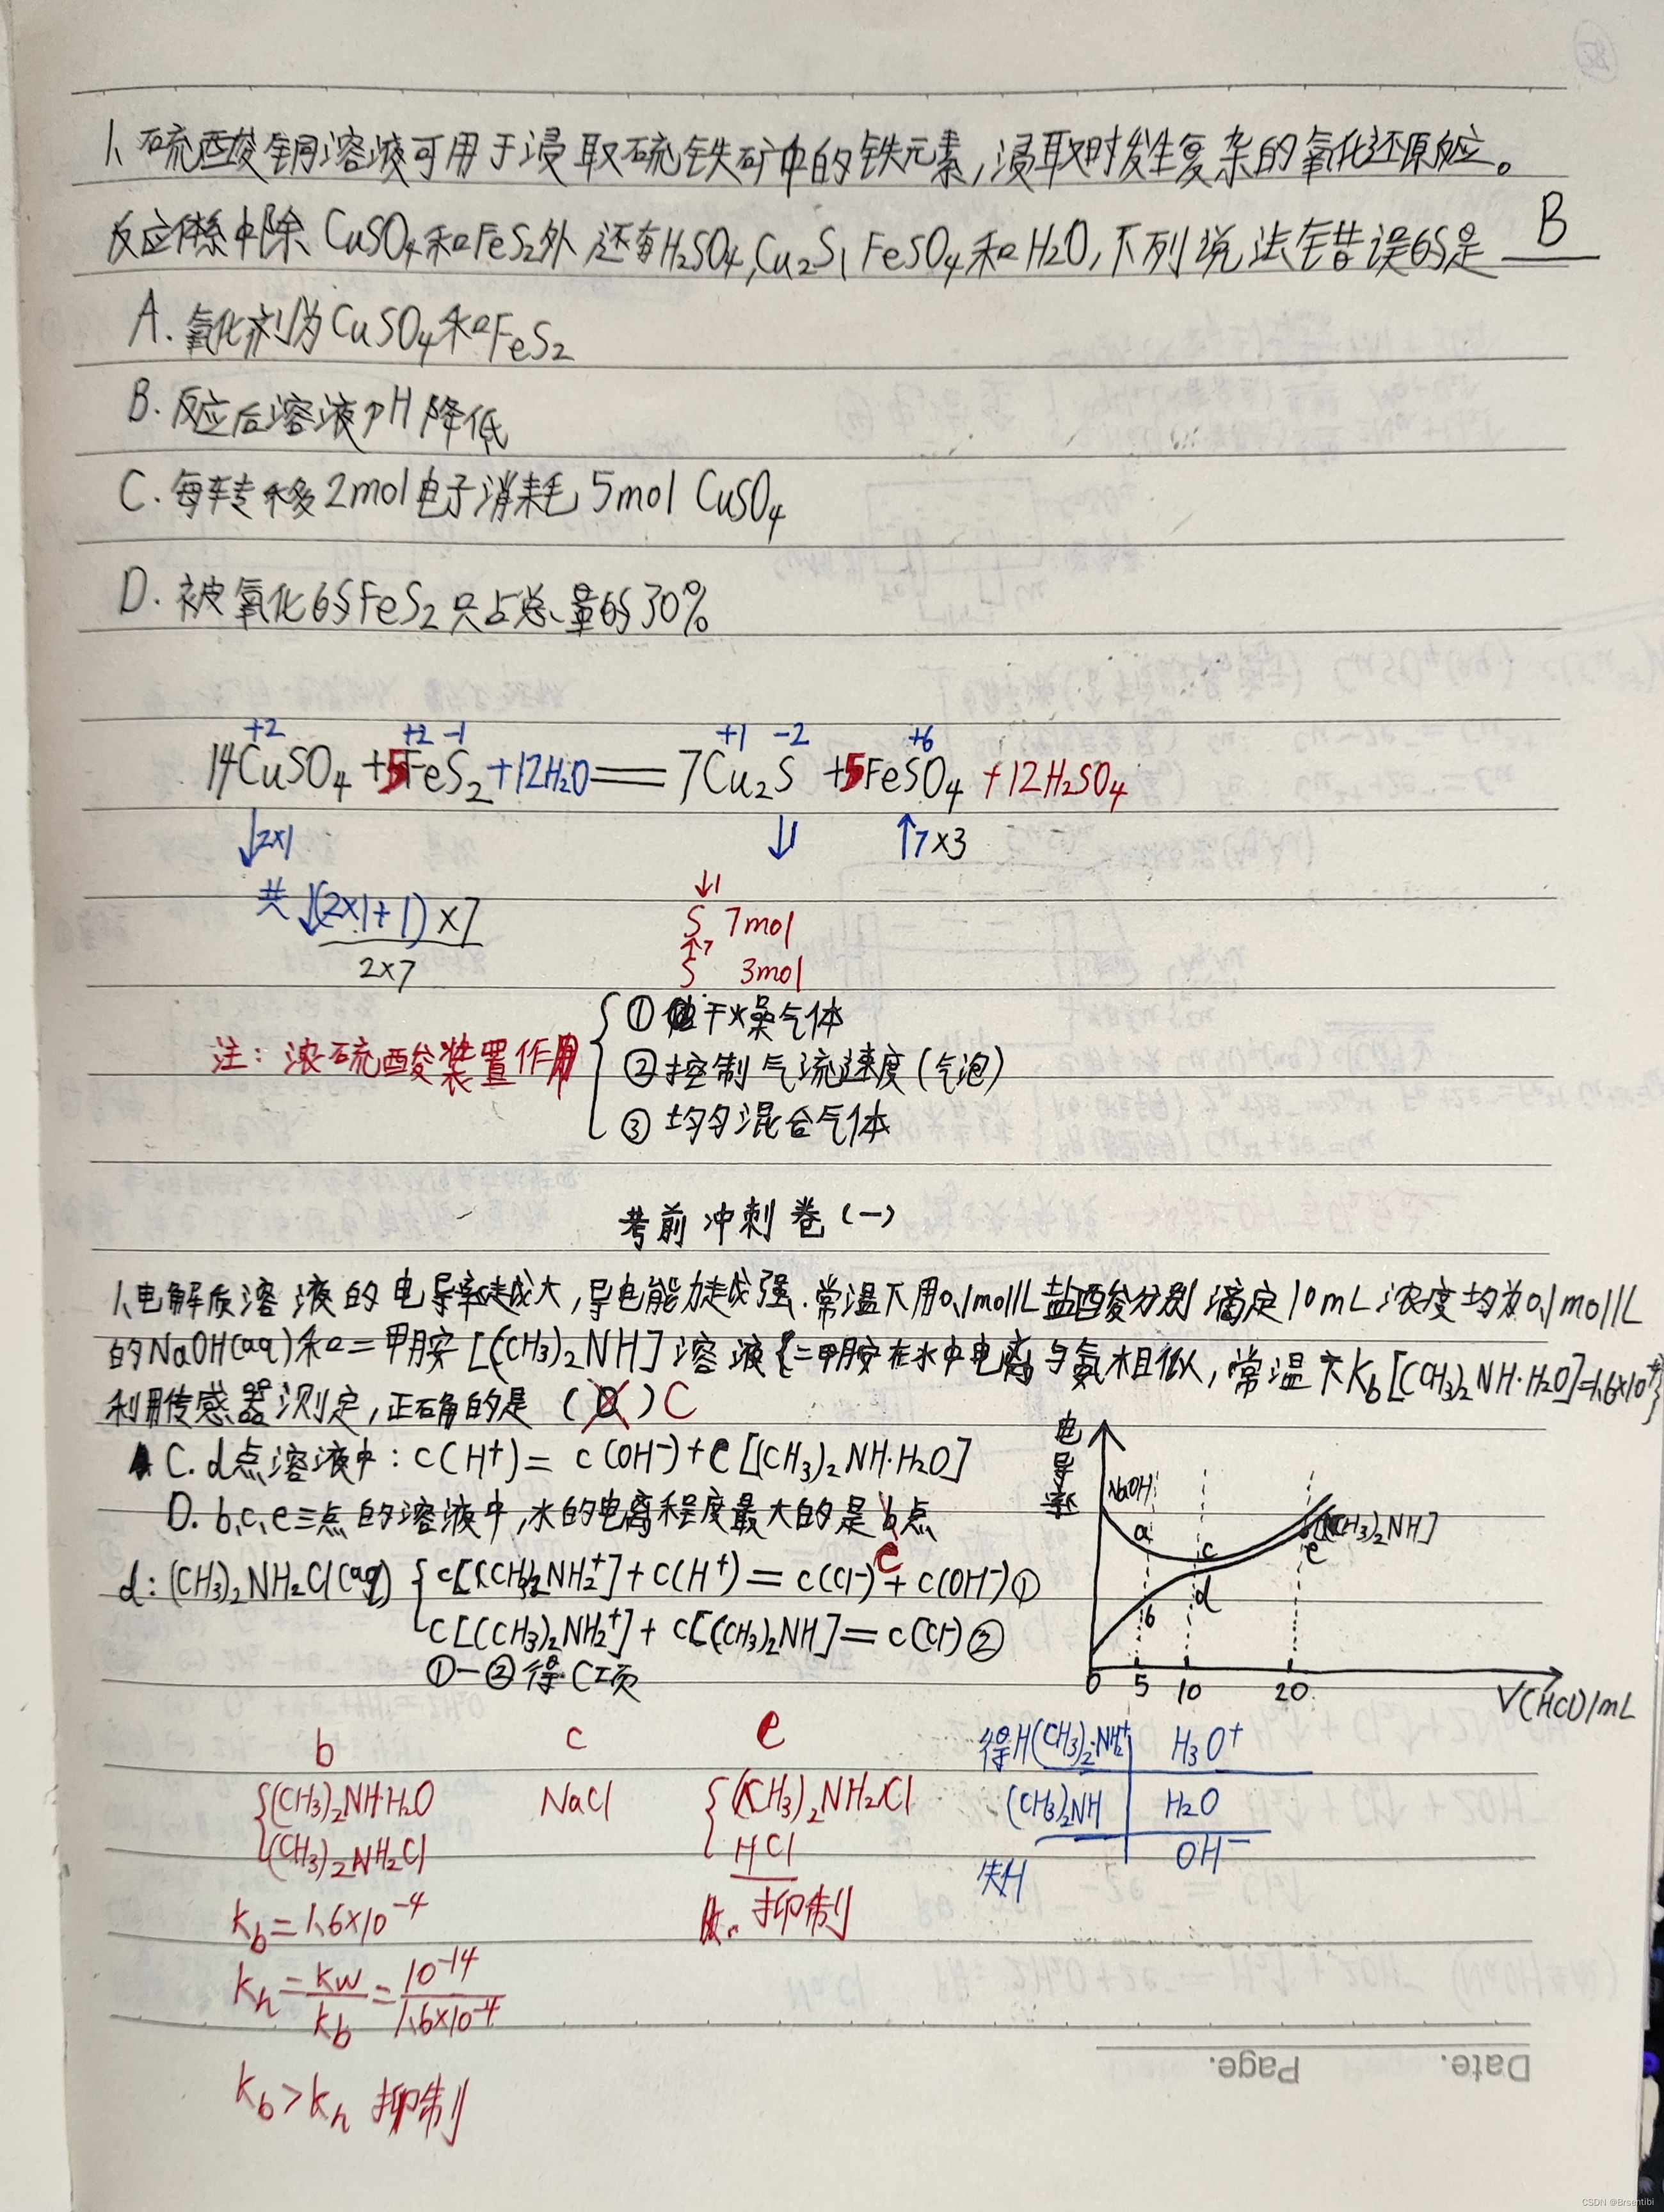 1、硫酸铜溶液可用于浸取硫铁矿中的铁元素,浸取时发生复杂的氧化还原反应。
反应体系中除CuSO₄和FeS₂外还有H₂SO₄,Cu₂S,FeSO₄和H₂O,下列说法错误的是 B
A. 氧化剂为CuSO₄和FeS₂
B. 反应后溶液pH降低
C. 每转移2mol电子消耗5mol CuSO₄
D. 被氧化的FeS₂只占总量的30%
+2 +2 -1 +1 -2 +6
14CuSO₄+5FeS₂+12H₂O══7Cu₂S+5FeSO₄+12H₂SO₄
↓2×1 ↓ ↑7×3
共↓(2×1+1)×7
2×7
↓1
S 7mol
↑7
S 3mol
注:浓硫酸装置作用
① 干燥气体
② 控制气流速度(气泡)
③ 均匀混合气体
考前冲刺卷(一)
1、电解质溶液的电导率越大,导电能力越强.常温下用0.1mol/L盐酸分别滴定10mL浓度均为0.1mol/L
的NaOH(aq)和二甲胺[(CH₃)₂NH]溶液{二甲胺在水中电离与氨相似,常温下Kb[(CH₃)₂NH·H₂O]=1.6×10⁻⁴}
利用传感器测定,正确的是(D)C
C. d点溶液中:c(H⁺)=c(OH⁻)+c[(CH₃)₂NH·H₂O]
D. b,c,e三点的溶液中,水的电离程度最大的是b点
c
d:(CH₃)₂NH₂Cl(aq) c[(CH₃)₂NH₂⁺]+c(H⁺)=c(Cl⁻)+c(OH⁻)①
c[(CH₃)₂NH₂⁺]+c[(CH₃)₂NH]=c(Cl⁻)②
①-②得C项
电导率
NaOH
a
c
[(CH₃)₂NH]
e
d
b
0 5 10 20
V(HCl)/mL
b c e
(CH₃)₂NH·H₂O NaCl (CH₃)₂NH₂Cl
(CH₃)₂NH₂Cl HCl
抑制
得H (CH₃)₂NH₂⁺ H₃O⁺
(CH₃)₂NH H₂O
失H OH⁻
Kb=1.6×10⁻⁴
Kh=Kw/Kb=10⁻¹⁴/1.6×10⁻⁴
Kb>Kh 抑制
Date. Page.
CSDN @Brsentibi